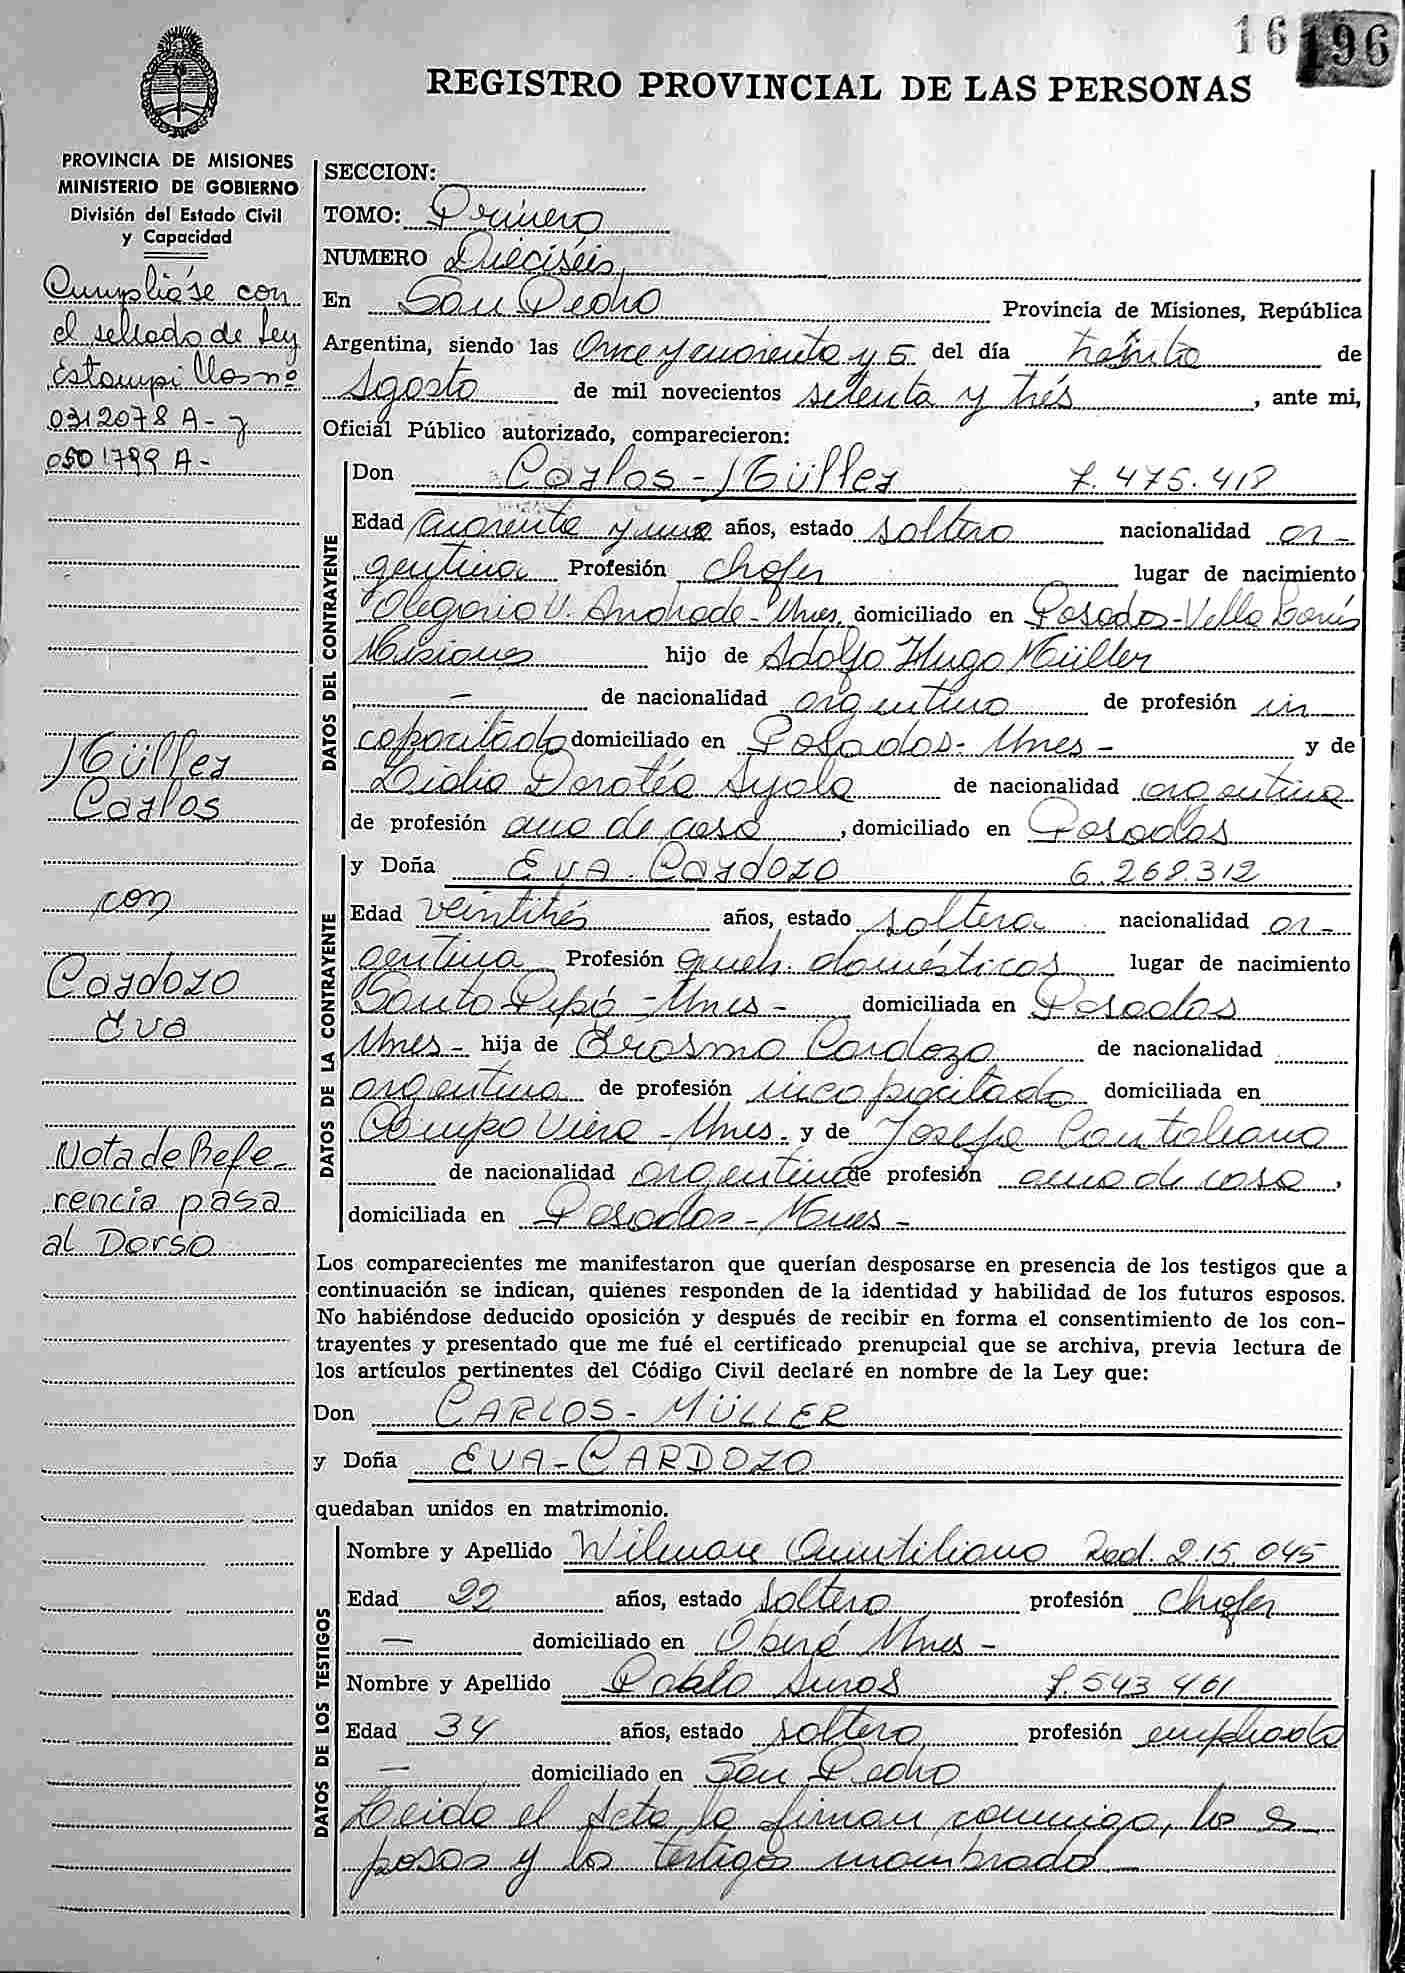 16 196
REGISTRO PROVINCIAL DE LAS PERSONAS
PROVINCIA DE MISIONES
MINISTERIO DE GOBIERNO
División del Estado Civil
y Capacidad
Cumplióse con
el sellado de Ley
Estampillas nº
0312078 A - y
0501799 A -
Müller
Carlos
con
Cardozo
Eva
Nota de Refe-
rencia pasa
al Dorso
SECCION:
TOMO: Primero
NUMERO Dieciséis
En San Pedro Provincia de Misiones, República
Argentina, siendo las Once y cuarenta y 5 del día treinta de
Agosto de mil novecientos setenta y trés, ante mi,
Oficial Público autorizado, comparecieron:
DATOS DEL CONTRAYENTE
Don Carlos - Müller 7.475.418
Edad cuarenta y uno años, estado soltero nacionalidad ar-
gentina Profesión chofer lugar de nacimiento
Olegario V. Andrade - Mnes. domiciliado en Posadas - Villa Lanús
Misiones hijo de Adolfo Hugo Müller
- de nacionalidad argentino de profesión in
capacitado domiciliado en Posadas - Mnes - y de
Lidia Dorotéa Ayala de nacionalidad argentina
de profesión ama de casa, domiciliado en Posadas
DATOS DE LA CONTRAYENTE
y Doña EVA - Cardozo 6.268.312
Edad veintitrés años, estado soltera nacionalidad ar-
gentina Profesión queh. domésticos lugar de nacimiento
Santo Pipó - Mnes - domiciliada en Posadas
Mnes - hija de Erasmo Cardozo de nacionalidad
argentina de profesión incapacitado domiciliada en
Campo Viera - Mnes - y de Josefa
de nacionalidad argentina de profesión ama de casa,
domiciliada en Posadas - Mnes -
Los comparecientes me manifestaron que querían desposarse en presencia de los testigos que a
continuación se indican, quienes responden de la identidad y habilidad de los futuros esposos.
No habiéndose deducido oposición y después de recibir en forma el consentimiento de los con-
trayentes y presentado que me fué el certificado prenupcial que se archiva, previa lectura de
los artículos pertinentes del Código Civil declaré en nombre de la Ley que:
Don CARLOS - MÜLLER
y Doña EVA - CARDOZO
quedaban unidos en matrimonio.
DATOS DE LOS TESTIGOS
Nombre y Apellido Quintiliano 215.045
Edad 22 años, estado soltero profesión chofer
- domiciliado en Oberá Mnes -
Nombre y Apellido Pablo 7.543.461
Edad 34 años, estado soltero profesión empleado
- domiciliado en San Pedro
Leida el Acta la firman conmigo, los es
posos y los testigos